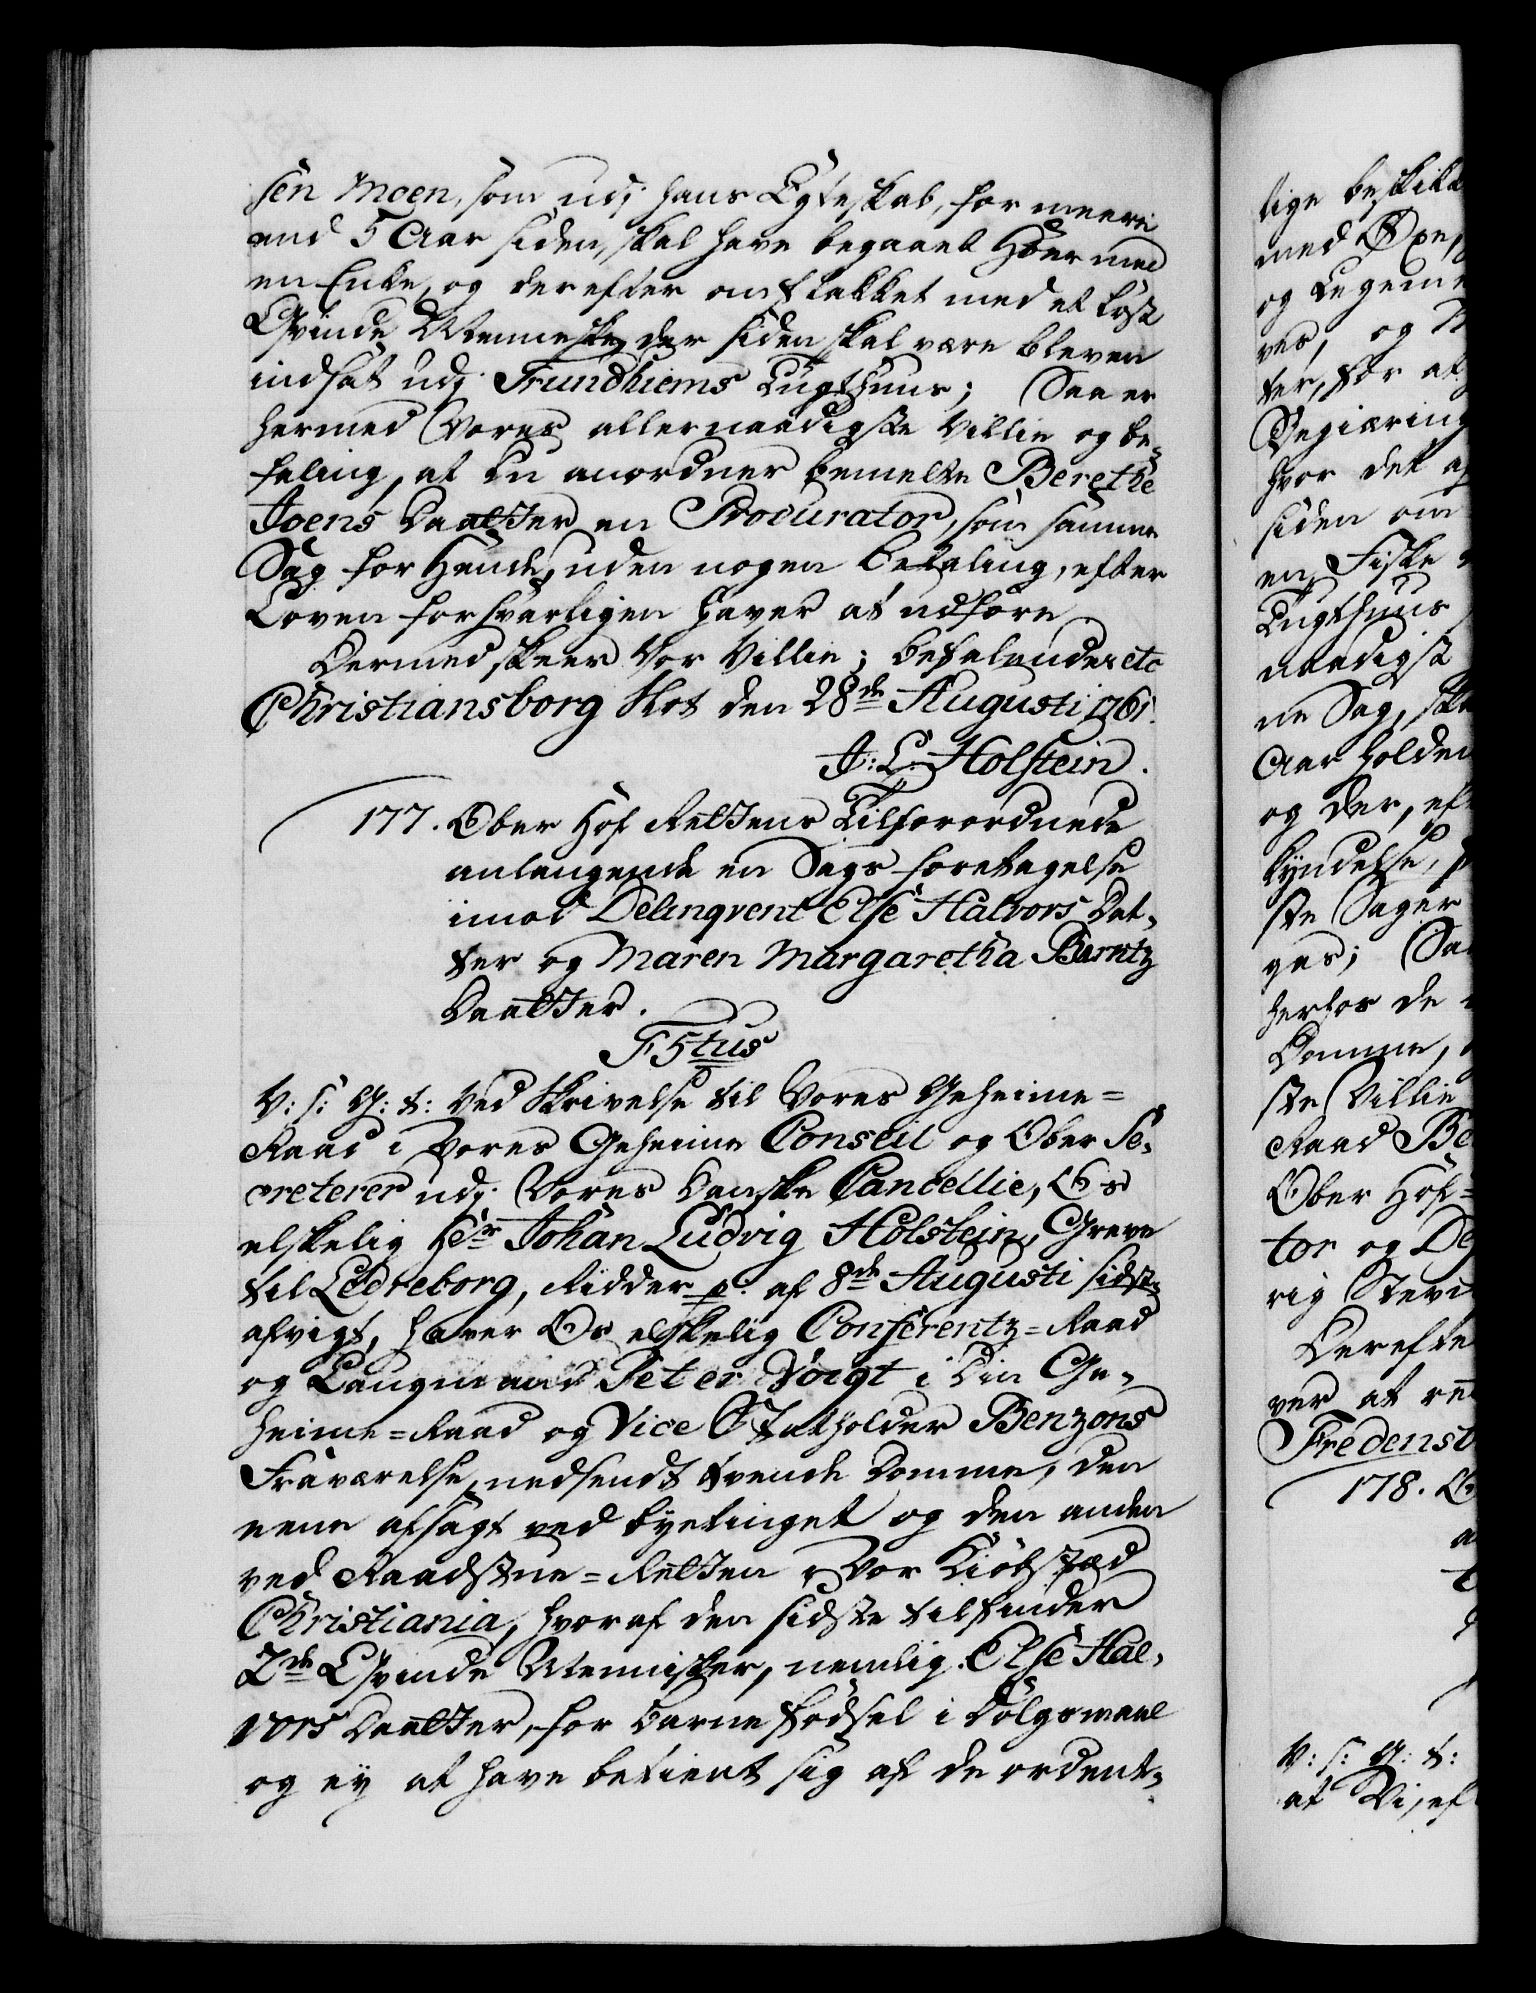 sen Moen, som udj hans Ægteskab, for meere
end 5 Aar siden, skal have begaaet Hoer med
en Enke, og derefter omflakket med et løst
Qvinde Menneske, der siden skal være bleven
indsat udj Trundhiems Tugthuus; Saa er
hermed Vores allernaadigste Villie og be-
faling, at du anordner bemelte Berethe
Joens Daatter en Procurator, som samme
Sag for Hende, uden nogen betaling, efter
Loven forsvarligen haver at udføre.
Dermed skeer Vor Villie; befalendes etc
Christiansborg Slot den 28de Augusti 1761.
J: L: Holstein.
177. Ober Hof Rettens Tilforordnede
anlangende en Sags foretagelse
imod Delinqvent Else Halvors Dat-
ter og Maren Margaretha Barntz
Daatter.
F5tus
V: s: G: t: Ved Skrivelse til Vores Geheime-
Raad i Vores Geheime Conseil og Ober Se-
creterer udj Vores Danske Cancellie, Os
elskelig Hr Johan Ludvig Holstein, Greve
til Ledreborg, Ridder p: af 8de Augusti sidst-
afvigt, haver Os elskelig Conferentz-Raad
og Laugmand Peter Voigt i Din Ge-
heime-Raad og Vice Statholder Benzons
Fraværelse, nedsendt tvende Domme, den
eene afsagt ved byetinget og den anden
ved Raadstue-Retten i Vor Kiøbstæd
Christiania, hvoraf den sidste tilfinder
2de Qvinde Mennisker, nemlig Else Hal-
vors Daatter, for Barne fødsel i Dølgsmaal
og ej at have betient sig af de ordent-
lige beskikk
med Øxe,
og Legeme
ves, og M
ter, for at
Begiæring
hvor det af
siden om
en Fiske
Tugthuus
naadigst
ne Sag, ska
Aar holden
og der, eft
kyndelse,
ste Sager
ges; Saa
herfor de
Domme,
ste Villie
Raad Be
Ober Hof-
tor og De
rig Stevn
Derefte
ver at re
Fredensb
178. O
V: s: G: t:
at Vi, ef